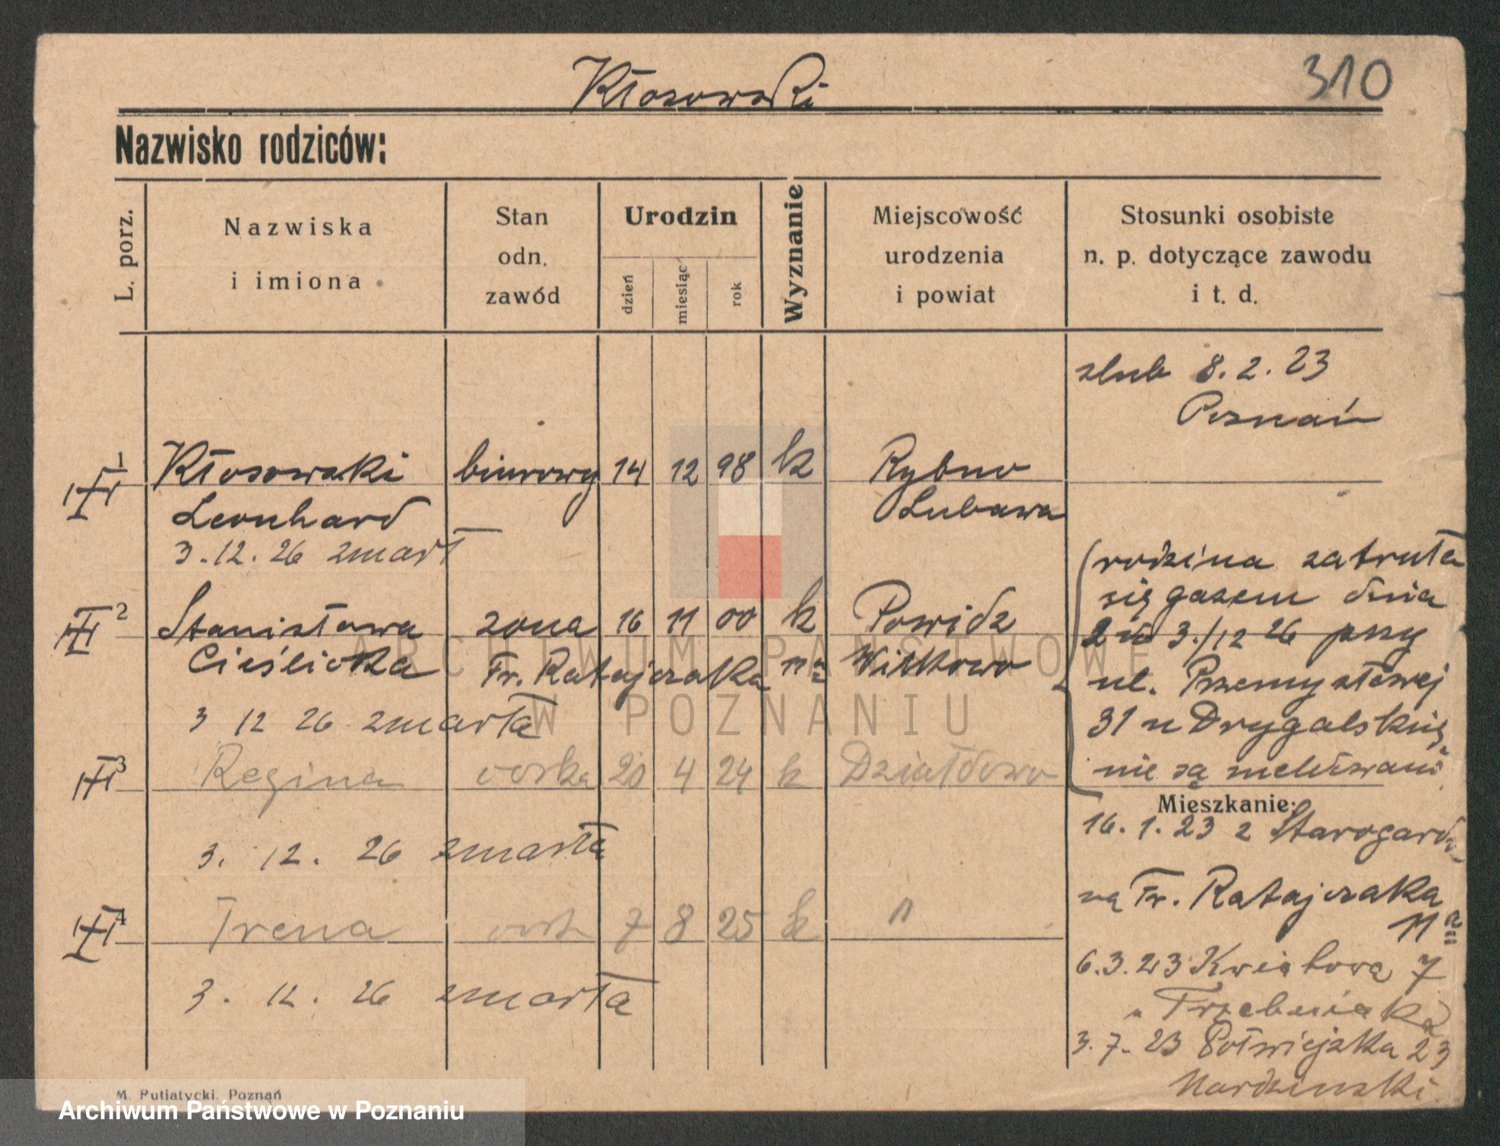 310
Kłosowski
Nazwisko rodziców:
L. porz.
Nazwiska
i imiona
Stan
odn.
zawód
Urodzin
dzień
miesiąc
rok
Wyznanie
Miejscowość
urodzenia
i powiat
Stosunki osobiste
n. p. dotyczące zawodu
i t. d.
slub 8. 2. 23
Poznań
1 Kłosowski biurowy 14 12 98 k Rybno
Leonhard Lubawa
3. 12. 26 zmarł
2 Stanisława żona 16 11 00 k Powidz
Cieślicka Fr. Ratajczaka 11a Witkowo
3 12 26 zmarła
3 Regina corka 20 4 24 k Działdowo
3. 12. 26 zmarła
4 Irena 7 8 25 k "
3. 12. 26 zmarła
(rodzina zatruta
się gazem dnia
3/12 26 przy
ul. Przemysłowej
31 u Drygalskiej
nie są meldowani
Mieszkanie:
16. 1. 23 z Starogardu
na Fr. Ratajczaka
11a
6. 3. 23 Kwiatowa 7
Trzebniaka
3. 7. 23 Półwiejska 23
M. Putiatycki, Poznań
ARCHIWUM PAŃSTWOWE
W POZNANIU
Archiwum Państwowe w Poznaniu